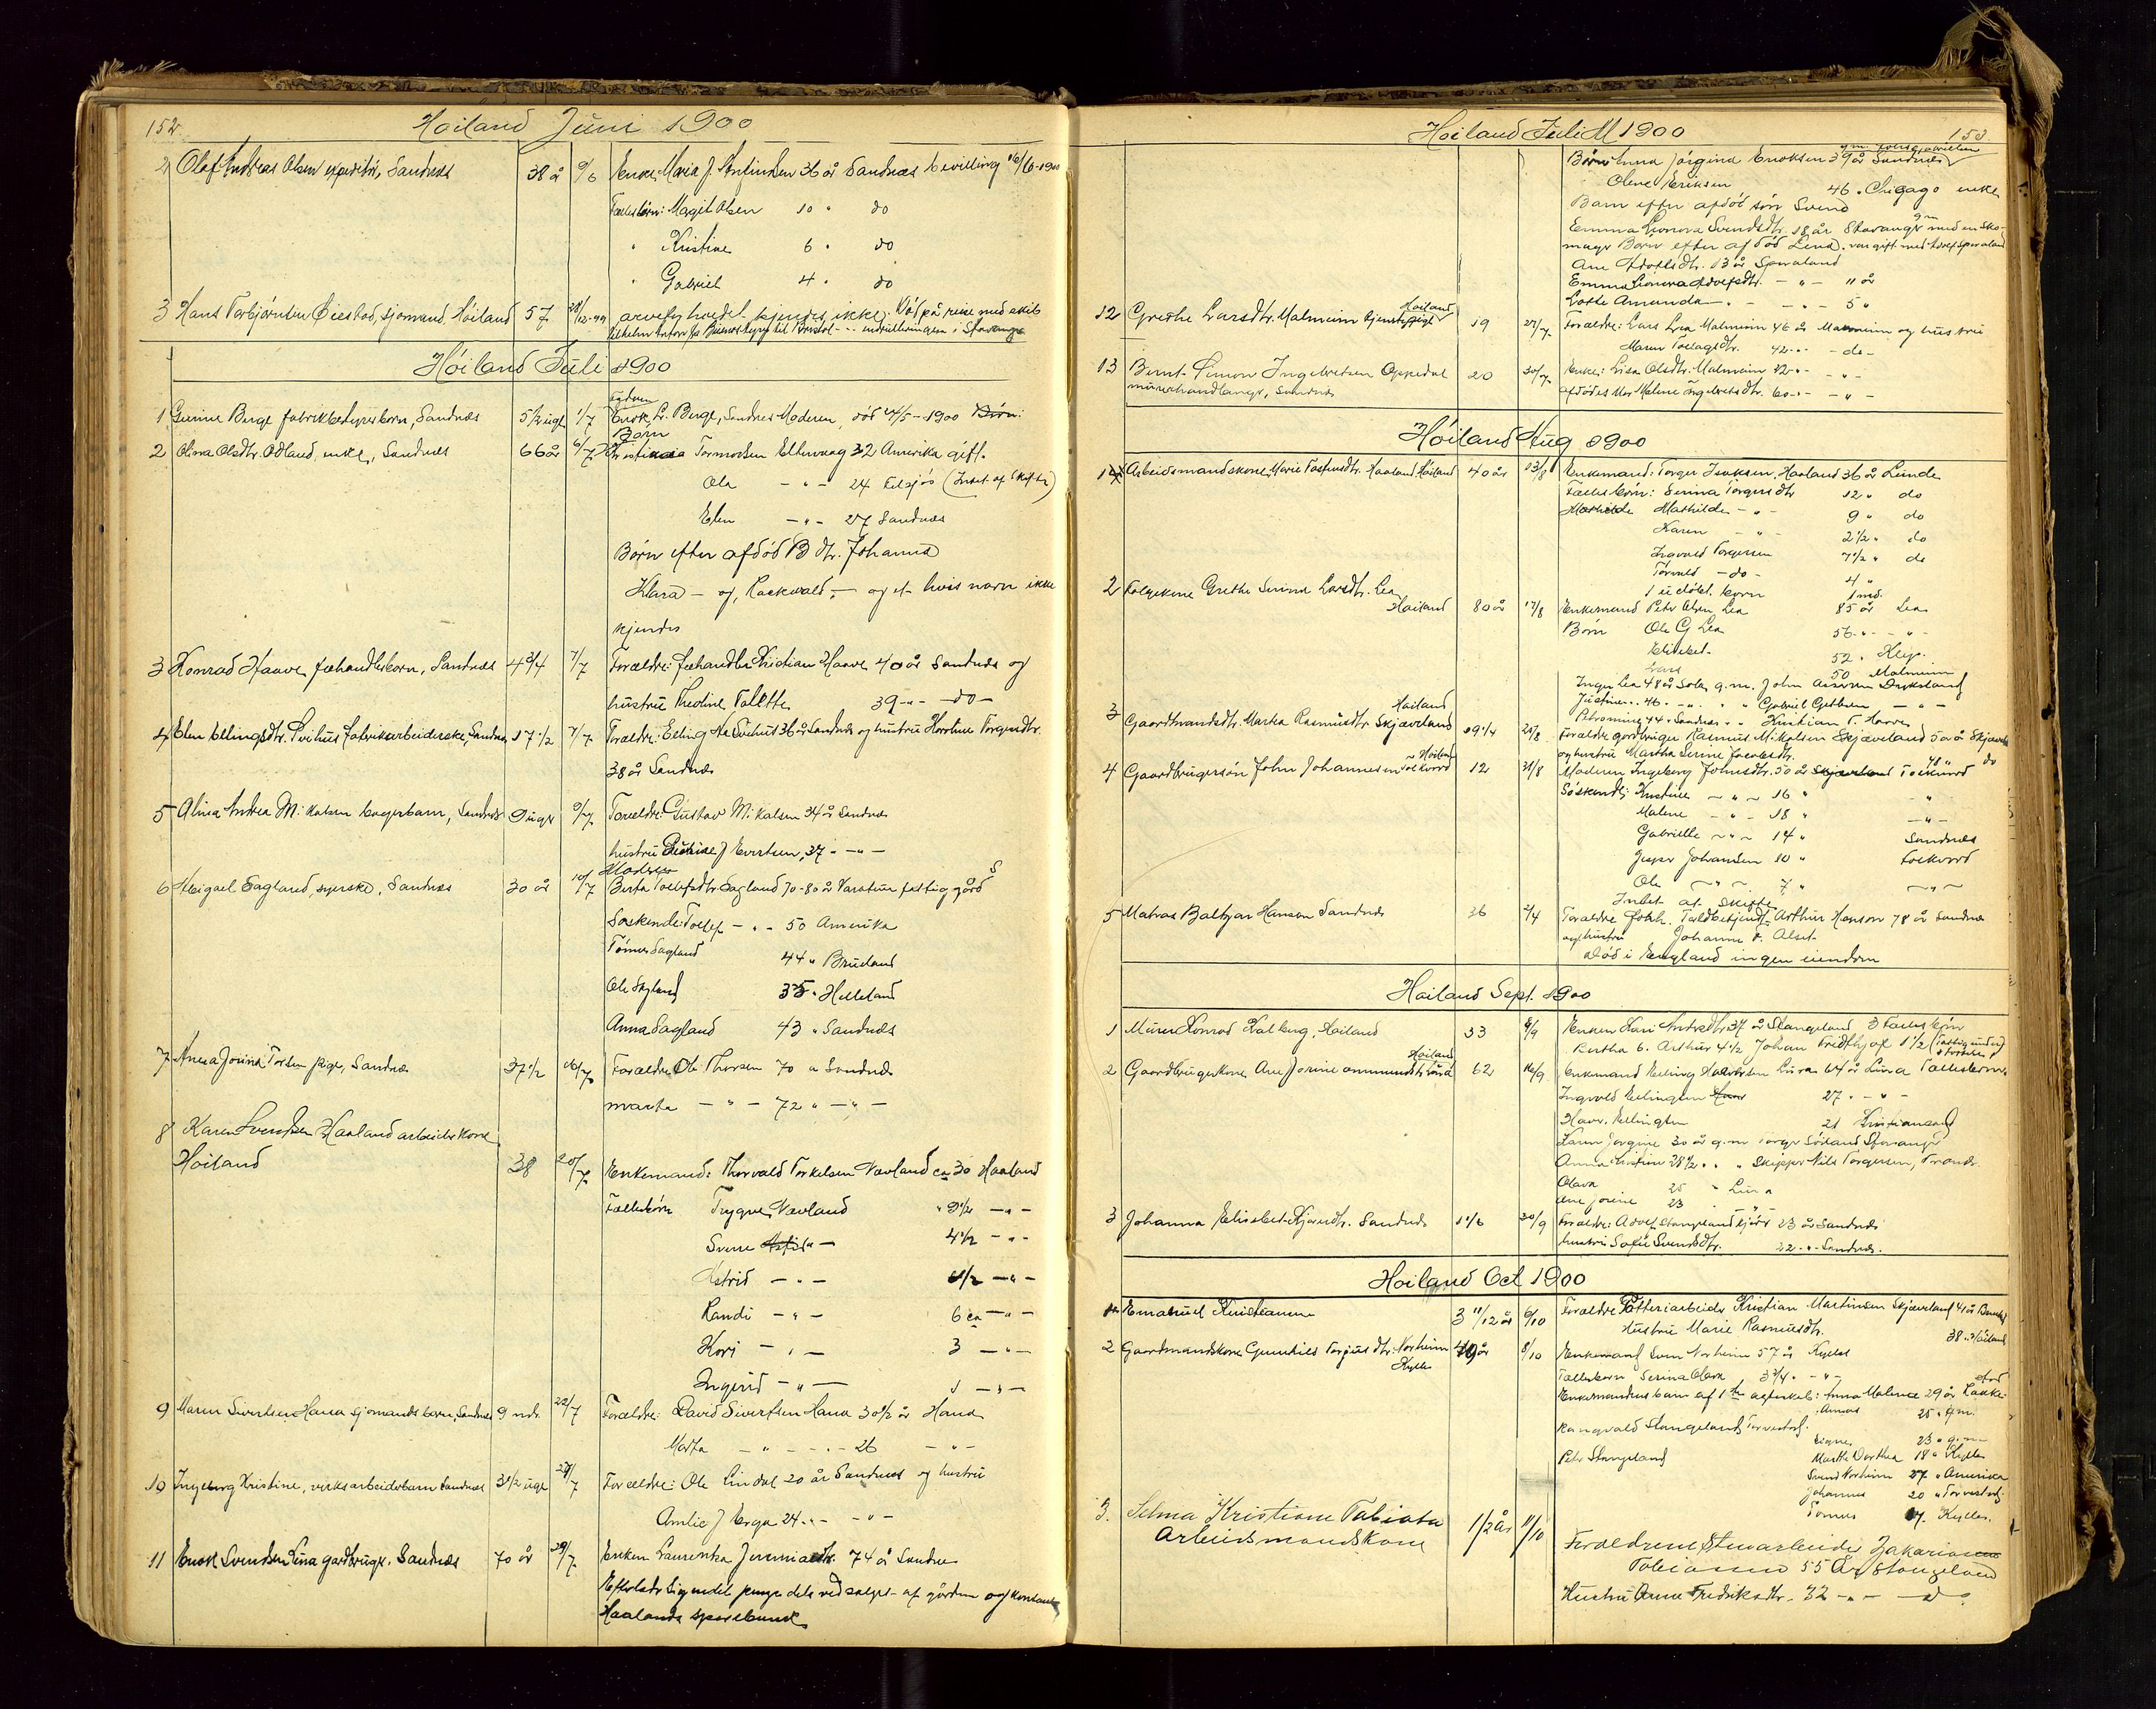 152
Høiland Juni 1900
2 Olaf Andreas Olsen expeditør, Sandnæs 38 år 9/6 Enke: Maria J. 36 år Sandnæs bevilling 16/6-1900
Fællesbörn: Magit Olsen 10 " do
" Kristine 6 " do
" Gabriel 4 " do
3 Hans Torbjørnsen Øiestad, sjømand, Høiland 57 arvefyrhoedet kjendes ikke. Død på reise med skib
fra Buenos Ayres til Bristol - indrulleringen i Stavanger
Høiland Juli 1900
1 Gunine Berge fabrikbestyrerbarn, Sandnæs 5 1/2 uge 1/7 Enok L. Berge, Sandnes Moderen død 24/5-1900 Børn:
Børn
2 Olina Olsdtr. Ödland, enke, Sandnæs 66 år 6/7 Kristiana Tormodsen Eltervaag 32 Amerika gift.
Ole - " - 24 tilsjøs (Intet at skifte)
Elen - " - 27 Sandnæs
Børn efter afdöd B dtr. Johanna
Klara - og, Raekvald - og et hvis navn ikke
kjendes
3 Konrad Haave, fæhandlerbarn, Sandnæs 4 3/4 7/7 Forældre: fæhandler Kristian Haave 40 år Sandnæs og
hustru Thedine Talette 39 - " - do -
4 Elen Ellingsdtr. Svihus fabrikarbeiderske, Sandnæs 17 1/2 7/7 Forældre: Elling A. Svihus 36 år Sandnæs og hustru Karoline Torgersdtr.
38 år Sandnæs
5 Alina Andrea Mikalsen bagerbarn, Sandnæs 9 uger 9/7 Forældre: Gustav Mikalsen 34 år Sandnæs
hustru J Evertsen, 37 - " -
Moderen
6 Abigael Sagland, syerske, Sandnæs 30 år 10/7 Berta Tollefsdtr. Sagland 70-80 år Varatun fattiggård
Søskende: Tollef - " - 50 Amerika
Tönnes Sagland 44 " Brueland
Ole Sagland 35 " Helleland
Anna Sagland 43 " Sandnæs
7 Anna Jorina Torsen pige, Sandnæs 37 1/2 16/7 Forældre Ole Thorsen 70 " Sandnæs
marta - " - 72 " - " -
8 Karen Svendsen Haaland arbeiderkone
Høiland 38 20/7 Enkemand: Thorvald Torkelsen Nævland ca 30 Haaland
Fællesbörn Trygve Nævland " 9 1/2 - " -
Sverre - " - 4 1/2 - " -
Astrid - " - 1/2 - " -
Randi - " - 6 ca - " -
Kori - " - 3 - " -
Ingerid - " - 1 - " -
9 Maren Sivertsen Hana sjømandsbarn, Sandnæs 9 mdr. 22/7 Forældre: David Sivertsen Hana 30 1/2 år Hana
Marta - " - - " - 26 - " -
10 Ingeborg Kristine, verksarbeiderbarn Sandnæs 3 1/2 uge 27/7 Forældre: Ole Lindal 20 år Sandnæs og hustru
Amlie J Norga 24 - " - - " -
11 Enok Svendsen Lura gardbruger, Sandnæs 70 år 29/7 Enken Laurentza Jeremiasdtr. 74 år Sandnæs
Efterlader sig endel penge dels ved salget af gården og kontant
Haalands sparebank
Høiland Juli 1900 153
Børn: Anna Jörgine Enoksen 39 år Sandnæs
Olene Eriksen 46 " Chigago enke
Barn efter afdød sön Svend
Emma Leonora Svendsdtr. 18 år Stavanger gm med en sko-
mager Børn efter afdöd Lena. var gift med Adolf Spvæland
Ane Adolfsdtr. 13 år Spvaland
Emma Leonora Adolfsdtr. - " - 11 år
Lotte Amanda - " - - " - 5 "
12 Grethe Larsdtr. Malmeim tjenstepige Høiland 19 27/7 Forældre: Lars Lea Malmeim 46 år Malmeim og hustru
Maren Tollagsdtr. 42 - " - - do -
13 Bernt Simon Ingebretsen Oppedal 20 30/7 Enke: Lisa Olsdtr. Malmeim 22 - " - - " -
murerhandlanger, Sandnæs afdødes Mor Malene Ingebretsdtr. 60 - " - - " -
Høiland Aug 1900
1 Arbeidsmandskone Marie Tostensdtr. Haaland Høiland 40 år 13/8 Enkemand: Torger Isaksen Haaland 36 år Lunde
Fællesbörn: Serina Torgersdtr 12 " do
Mathilde - " - 9 " do
Karen - " - 2 1/2 " do
Ingvald Torgersen 7 1/2 " do
Torvald - do - 4 "
1 udöbt barn 1 md.
2 Folgekone Grethe Serine Larsdtr. Lea
Høiland 80 år 17/8 Enkemand Peter Olsen Lea 85 år Lea
Börn Ole G Lea 56 - " - - " -
Elisebet 52 " Klep.
Lars 50 Malmeim
Inger Lea 48 år Sola g.m. John Dyksland
Justine 46 - " - " " Gabriel Gjetbren - " -
Petromine 44 " Sandnæs " " Kristian T. Haave
3 Gaardmandsdtr. Marta Rasmusdtr Skjæveland Høiland 19 1/4 25/8 Forældre gårdbruger Rasmus Mikalsen Skjæveland 50 år Skjæveland
og hustru Martha Serine 48 " do
4 Gaardbrugersön John Johannesen Foskvord Høiland 12 31/8 Moderen Ingeborg Johnsdtr. 50 år Skjæveland Foskvord
Søskende: Kristine - " - 16 " "
Malene - " - 18 " - " -
Gabrielle - " - 14 " Sandnæs
Jesper Johansen 10 " Foskvord
Ole - " - 7 " - " -
Intet at skifte
5 Matias Baltzar Hanson Sandnæs 36 2/4 Forældre forh. Toldbetjendt Arthur Hanson 78 år Sandnæs
og hustru Johanna F. Alset
død i England ingen eiendom
Høiland Sept. 1900
1 Murer Konrad Kalberg, Høiland 33 8/9 Enken Kari Andrsdtr. 37 år Stangeland 3 Fællesbörn
Bertha 6. Arthur 4 1/2 Johan Fridthjof 1 1/2
2 Gaardbrugerkone Ane Jorine Ommundsdtr. Lura Høiland 62 16/9 Enkemand Elling Lura 64 år Lura Fællesbörn
Ingvald Ellingsen 27 " - " -
Haav. Ellingsen 21 Kristiansand
Karen Jorgine 30 år g.m. Torger Sörland Stavanger
Anna Kristine 28 1/2 " " " Skipper Nils Torgersen, Trondr.
Olava 25 " Lura
Ane Jorine 23 "
3 Johanna Elisebet Sandnæs 1 1/6 30/9 Forældre: Adolf Stangeland 23 år Sandnæs
hustru Sofie Svendsdtr. 22 - " - Sandnæs.
Høiland Oct 1900
1 Emanuel Kristiansen 3 11/12 år 6/10 Forældre Potteriarbeider Kristian Martinsen Skjæveland 41 år
Hustru Marie Rasmusdtr. 38 " Höiland
2 Gaardmandskone Gunhild Torjusdtr. Norheim 49 år 8/10 Enkemand Sven Norheim 57 år Kylles
Kylles Fællesbarn Serina Olava 3 3/4 " - " -
Enkemandens barn af 1ste ægteskab: Anna Malene 29 år
Amos 25 " gm.
Rangvald Stangeland, Torvestad
Signe 23 " g.m.
Peter Stangeland Martha Dorthea 18 " Kylles
Svend Norheim 27 " Amerika
Johannes 20 " Torvestad
Tönnes 17. Kylles.
3. Selma Kristiane Tabiata 1/2 år 11/10 Forældrene Stenarbeider Zakarias
Arbeidsmandskone Tobiassen 55 År Stangeland
Hustru Anne Fredriksdtr. 32 - " - - do.